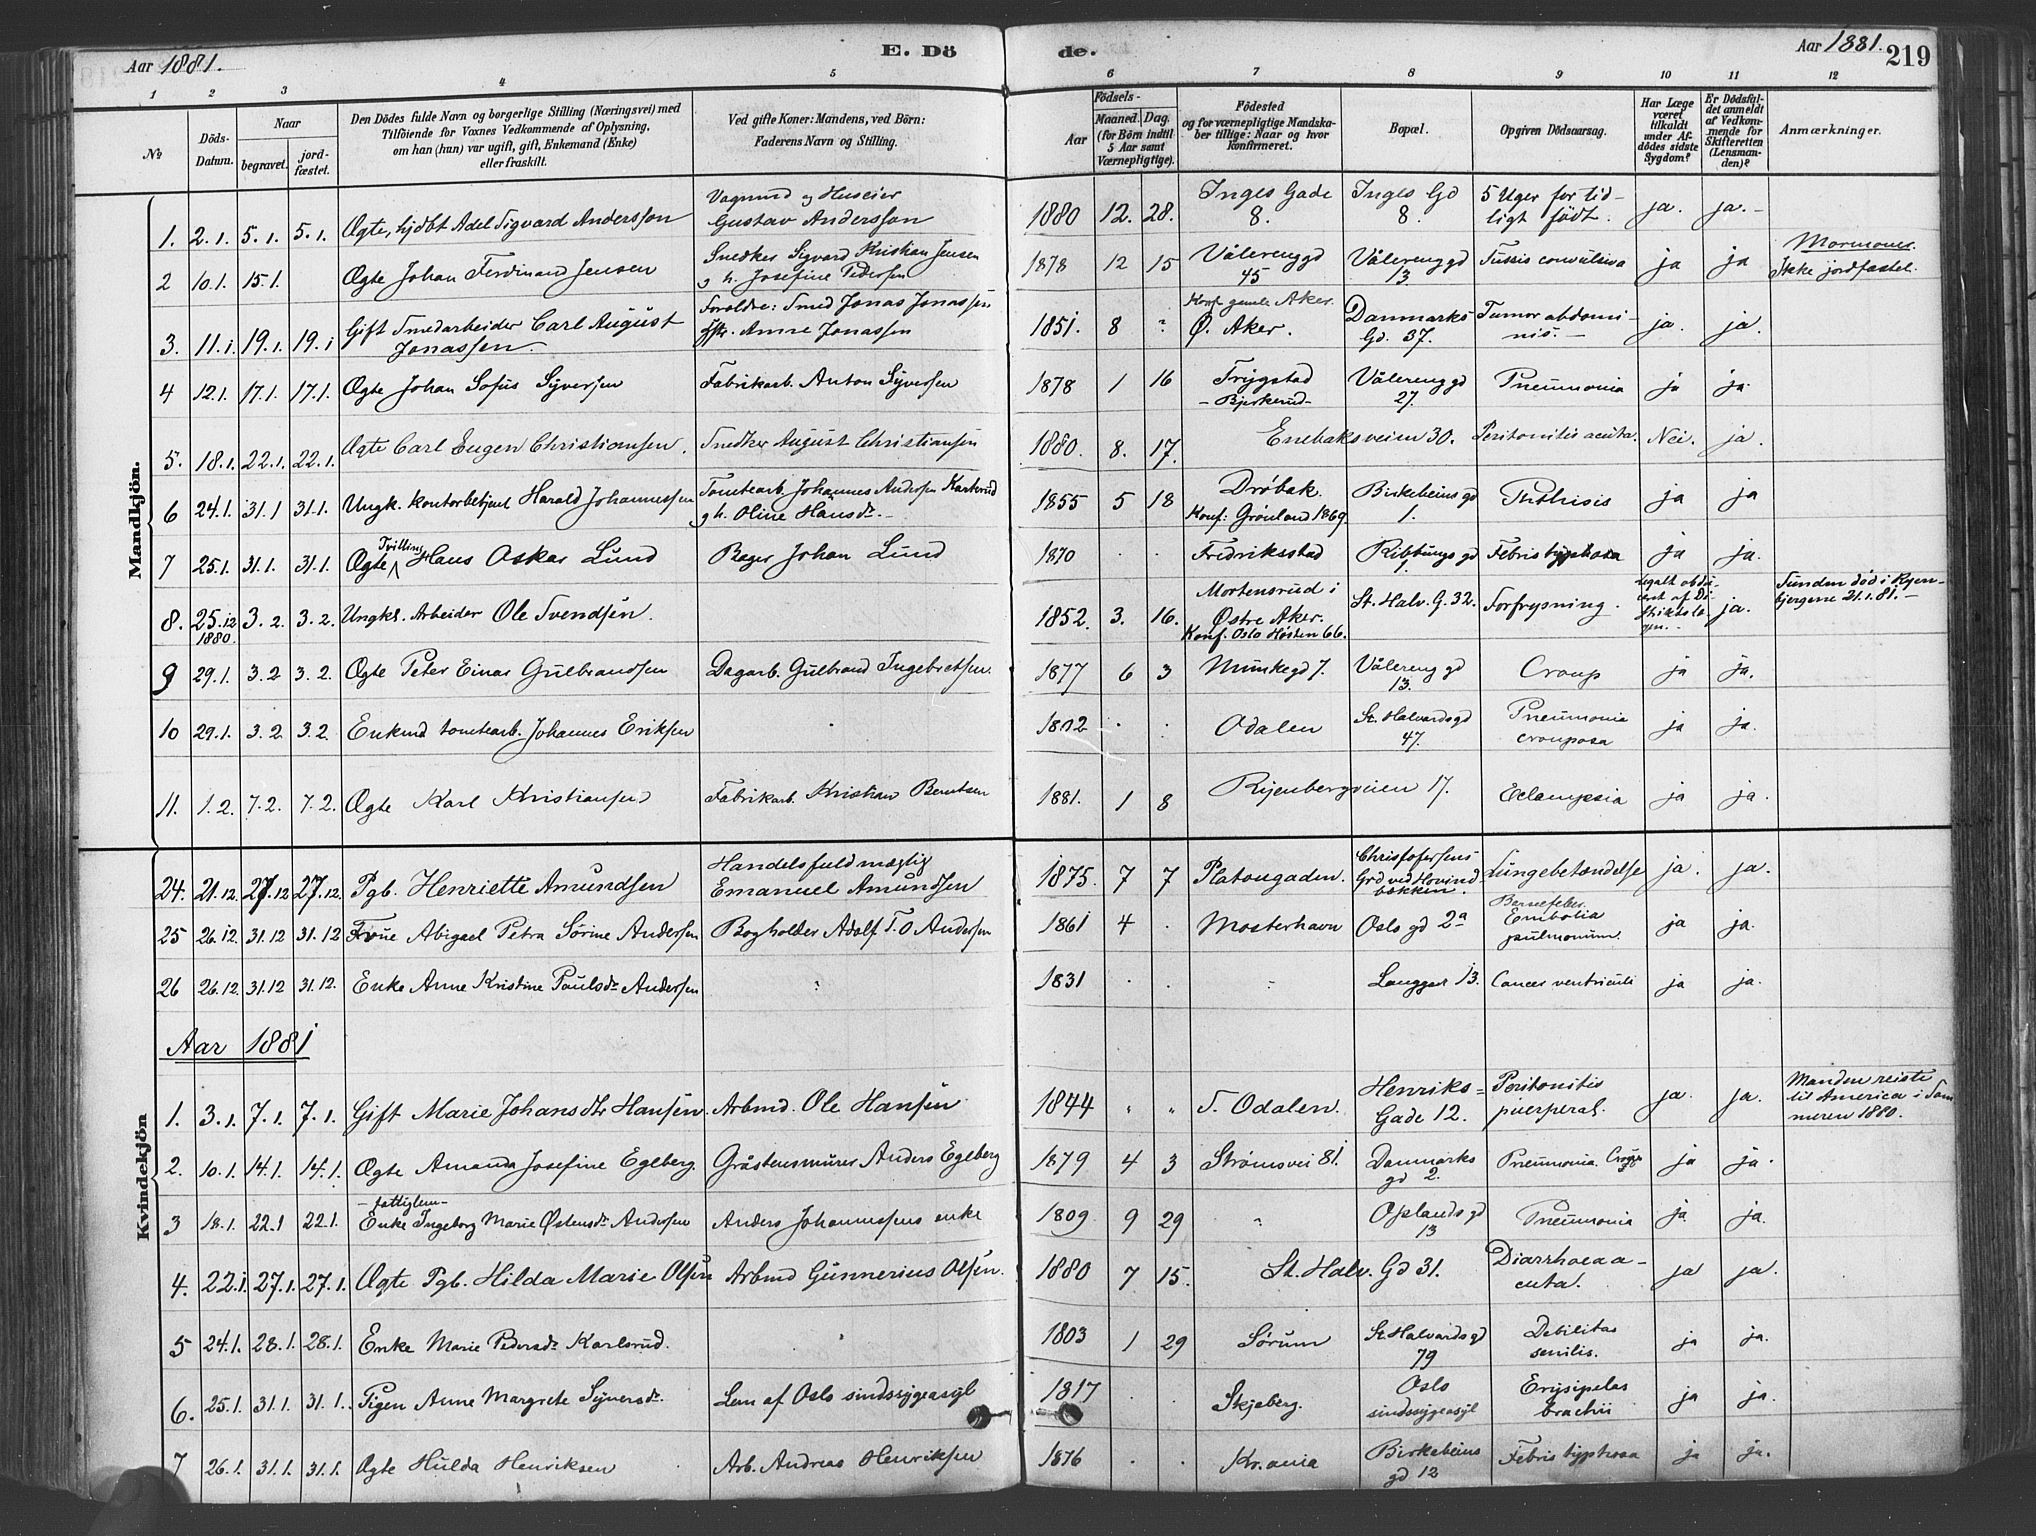 Aar 1881.
E. Dö
de.
Aar 1881.
219
1 2 3 4 5 6 7 8 9 10 11 12
No
Döds-Datum.
Naar
begravet.
jord-fæstet.
Den Dödes fulde Navn og borgerlige Stilling (Næringsvei) med
Tilföiende for Voxnes Vedkommende af Oplysning,
om han (hun) var ugift, gift, Enkemand (Enke)
eller fraskilt.
Ved gifte Koner: Mandens, ved Börn:
Faderens Navn og Stilling.
Aar
Födsels-
Maaned. Dag.
(for Börn indtil
5 Aar samt
Værnepligtige).
Födested
og for værnepligtige Mandska-
ber tillige: Naar og hvor
konfirmeret.
Bopæl.
Opgiven Dödsaarsag.
Har Læge
været
tilkaldt
under Af-
dödes sidste
Sygdom?
Er Dödsfal-
det anmeldt
af Vedkom-
mende for
Skifteretten
(Lensman-
den)?
Anmærkninger.
Mandkjön.
1. 2.1. 5.1. 5.1. Ægte, hjdbt Adel Sigvard Anderssøn Vognmd og Huseier Gustav Anderssøn 1880 12. 28. Inges Gade 8. Inges Gd 8. 5 Uger for tid-ligt født. ja. ja.
2 10.1. 15.1. Ægte Johan Ferdinand Jensen Snedker Sigvard Kristian Jensen og h. Josefine Pedersen 1878 12 15 Vålerenggd 45 Vålerenggd 13. Tussis convulsiva ja ja Mormoner. Ikke jordfæstet.
3. 11.1. 19.1. 19.1 Gift Smedarbeider Carl August Jonassen. Forældre: Smed Jonas Jonassen Hstr. Anne Jonassen 1851. 8 ? Konf. gamle Aker. Ø. Aker. Danmarks Gd. 37. Tumor abdomi-nis. ja. ja.
4 12.1. 17.1. 17.1. Ægte Johan Sofus Syversen Fabrikarb. Anton Syversen 1878 1 16 Trygstad - Bjerkerud - Vålereng gd 27. Pneumonia ja ja
5. 18.1. 22.1. 22.1. Ægte Carl Eugen Christiansen. Snedker August Christiansen 1880. 8. 17. Enebaksveien 30. Peritonitis acuta. Nei. ja.
6 24.1. 31.1 31.1. Ungk. kontorbetjent Harald Johannessen Tomtearb. Johannes Andersen Karterud og h. Oline Hansdr. 1855 5 18 Drøbak. Konf: Grønland 1869. Birkebeins gd 1. Phthisis ja ja
7 25.1. 31.1. 31.1. Ægte Tvilling Hans Oskar Lund Bager Johan Lund 1870 . . Fredriksstad Ribbungs gd 1. Febris typhosa ja ja.
8. 25.12 1880. 3.2. 3.2. Ungkl. Arbeider Ole Svendsen. 1852. 3. 16. Mortensrud i Østre Aker. Konf. Oslo Høsten 66. St. Halv. G. 32. Forfrysning. Legalt obdu-cert af Di-striktslæ-gen. ja. Funden død i Ryen-bjergene 21.1.81.
9 29.1. 3.2 3.2. Ægte Peter Einar Gulbrandsen Dagarb. Gulbrand Ingebretsen. 1877 6 3 Munkegd 7. Vålereng gd 13. Croup ja ja.
10 29.1. 3.2 3.2. Enkmd tomtearb. Johannes Eriksen 1802 . . Odalen St. Halvards gd 47. Pneumonia crouposa ja ja.
11. 1.2. 7.2. 7.2. Ægte Karl Kristiansen Fabrikarb. Kristian Berntsen 1881. 1 8 Ryenbergveien 17. Eclampsia ja ja.
Kvindekjön
24. 21.12. 27.12 27.12. Pgb. Henriette Amundsen Handelsfuldmægtig Emanuel Amundsen 1875. 7 7 Platougaden. Christofersens Grd ved Hovind-bækken. Lungebetændelse ja. ja.
25 26.12. 31.12 31.12 Frue Abigael Petra Sørine Andersen Bogholder Adolf T. O Andersen 1861 4 . Mosterhavn Oslo gd 2a Barselfeber. Embolia pulmonum. ja ja.
26 26.12. 31.12 31.12. Enke Anne Kristine Paulsdr Andersen 1831 . . Langgad 13. Cancer ventriculi ja ja.
Aar 1881
1. 3.1. 7.1. 7.1. Gift Marie Johansdtr Hansen. Arbmd. Ole Hansen 1844 " " S. Odalen. Henriks-Gade 12. Peritonitis puerperal. ja. ja. Manden reiste til America i Som-meren 1880.
2. 10.1. 14.1. 14.1. Ægte Amanda Josefine Egeberg. Gråstensmurer Anders Egeberg 1879 4 3 Strømsvei 81. Danmarks gd 2. Pneumonia. ja ja.
3 18.1. 22.1 22.1. - fattiglem - Enke Ingeborg Marie Østensdr Andersen Anders Johannessens enke 1809 9 29 " Oplands gd 13 Pneumonia ja ja.
4. 22.1. 27.1. 27.1. Ægte Pgb. Hilda Marie Olsen Arbmd Gunnerius Olsen. 1880 7 15. St. Halv. Gd 31. Diarrhoea a-cuta. ja ja.
5 24.1. 28.1. 28.1. Enke Marie Pedersdr Karlsrud. 1803 1 29 Sørum St. Halvards gd 79 Debilitas senilis. ja ja.
6. 25.1. 31.1. 31.1. Pigen Anne Margrete Syversdr. Lem af Oslo sindssygeasyl 1817 . . Skjeberg. Oslo sindssygeasyl Erysipelas brachii ja ja.
7 26.1. 31.1. 31.1. Ægte Hulda Henriksen Arb. Andreas Henriksen 1876 . . Kr.ania Birkebeins gd 12 Febris typhosa ja ja.